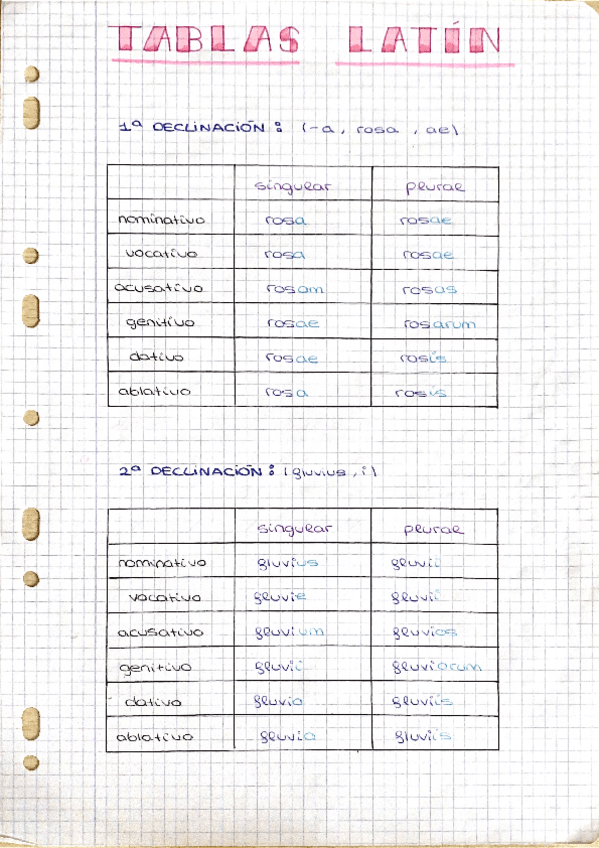 TABLAS LATÍN
1ª DECLINACIÓN: (-a, rosa, ae)
singular plural
nominativo rosa rosae
vocativo rosa rosae
acusativo rosam rosas
genitivo rosae rosarum
dativo rosae rosis
ablativo rosa rosis
2ª DECLINACIÓN: (fluvius, i)
singular plural
nominativo fluvius fluvii
vocativo fluvie fluvii
acusativo fluvium fluvios
genitivo fluvii fluviorum
dativo fluvio fluviis
ablativo fluvio fluviis